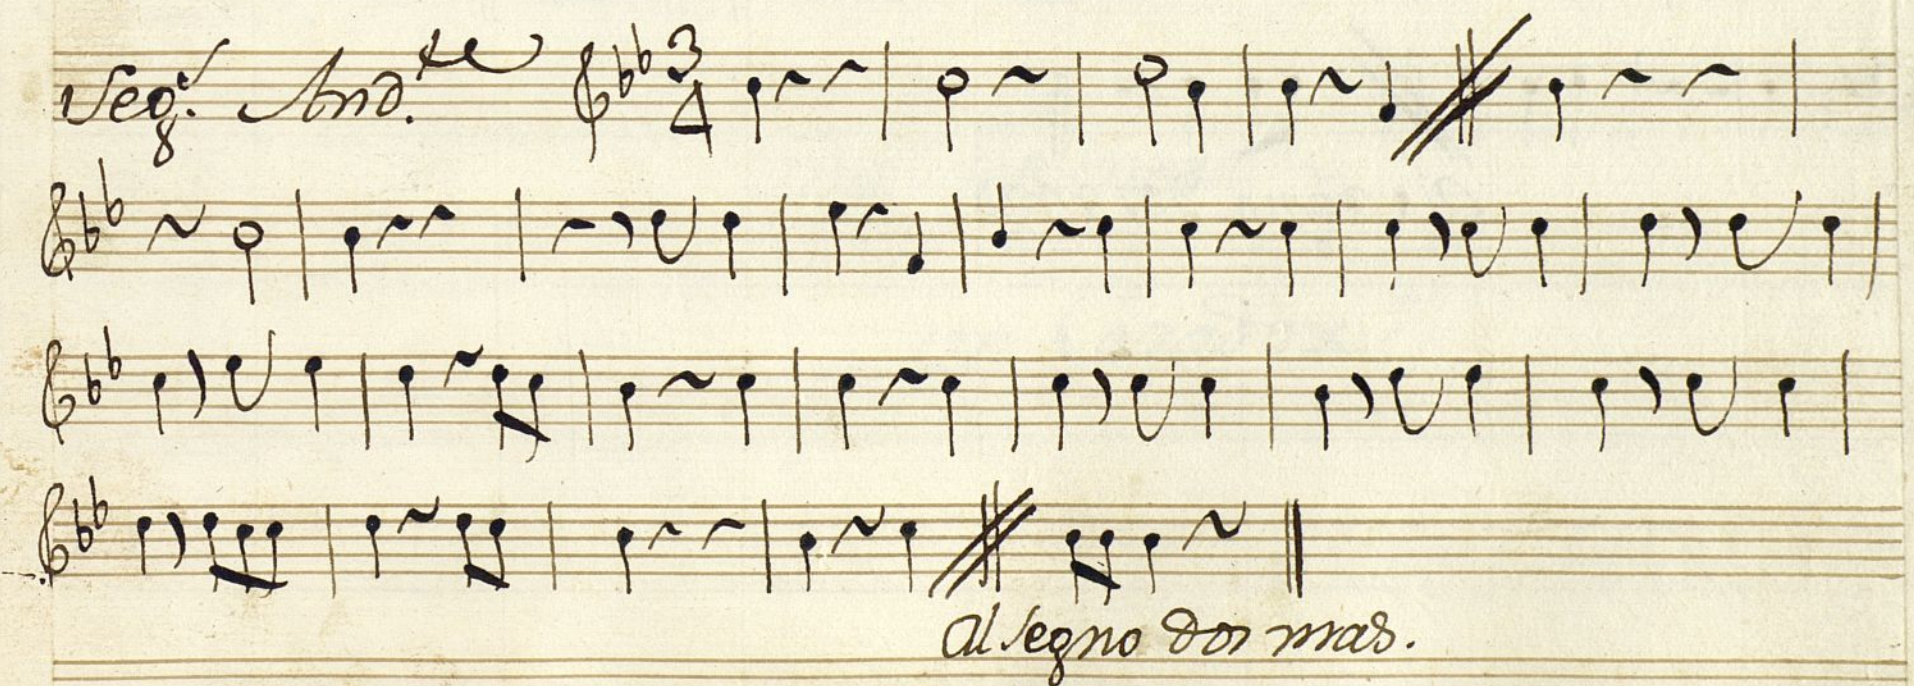 Seg.s And.te 3 4
Al segno dos mas.